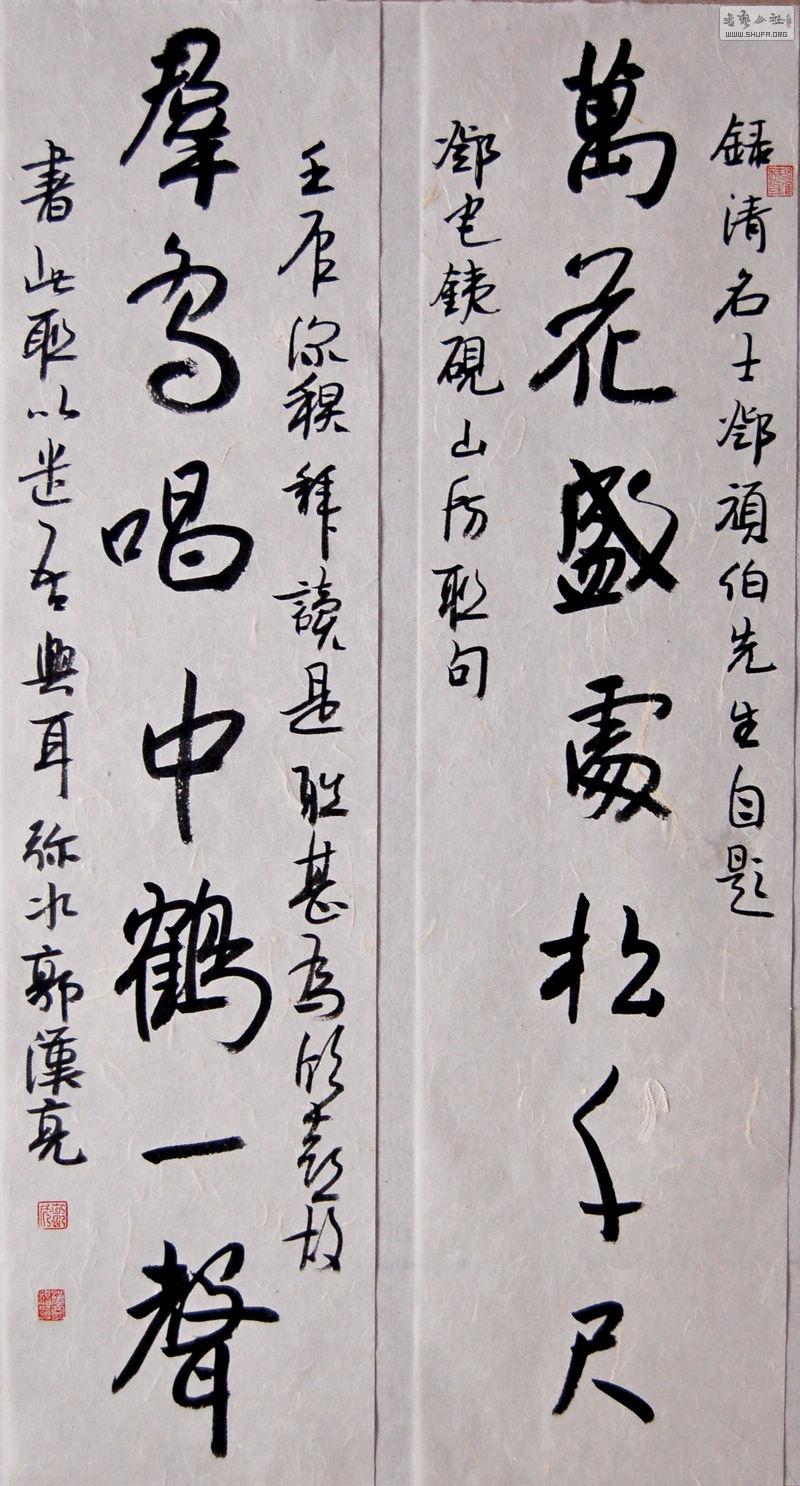 書藝公社
WWW.SHUFA.ORG
錄清名士鄧頑伯先生自題
萬花盛處松千尺
鄧宅銕硯山房聯句
壬辰深穐拜讀是聯甚為欣喜故
羣鳥喝中鶴一聲
書此聯以遣吾興耳弥水郭漢亮